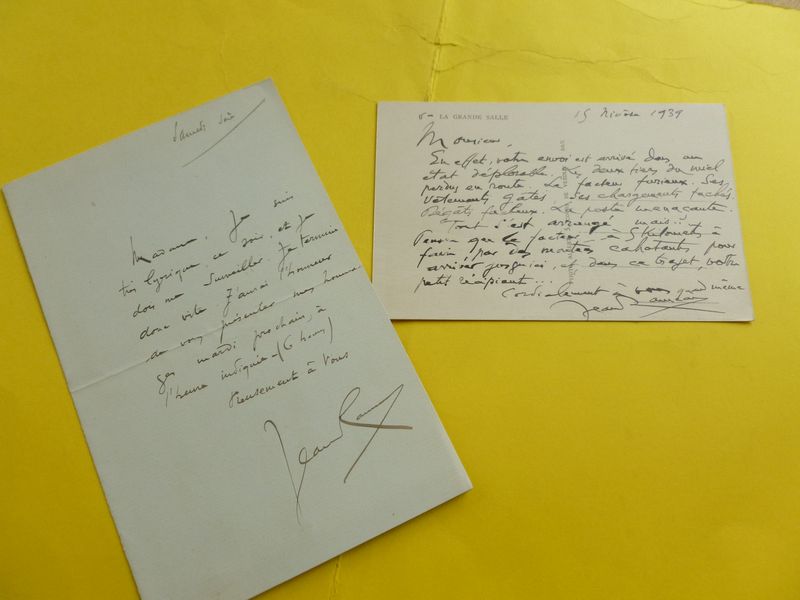 Samedi soir
Madame, Je suis
très lyrique ce soir et je
dois me surveiller. Je termine
donc vite J'aurai l'honneur
de vous présenter mes homma-
ges mardi prochain, à
l'heure indiquée - (6 heures)
à Vous
Jean
6 - LA GRANDE SALLE
15 1939
Monsieur,
En effet, votre envoi est arrivé dans un
état déplorable. Les deux tiers du miel
perdus en route. Le facteur furieux. Ses
vêtements gâtés. Ses chargements tachés.
Dégâts fâcheux. La poste menaçante.
Tout s'est arrangé mais...
Pensez que le facteur a 5 Kilomètres à
faire, par des montées cahotantes pour
arriver jusqu'ici, et dans ce trajet, votre
petit récipient...
Cordialement à vous quand même
Jean